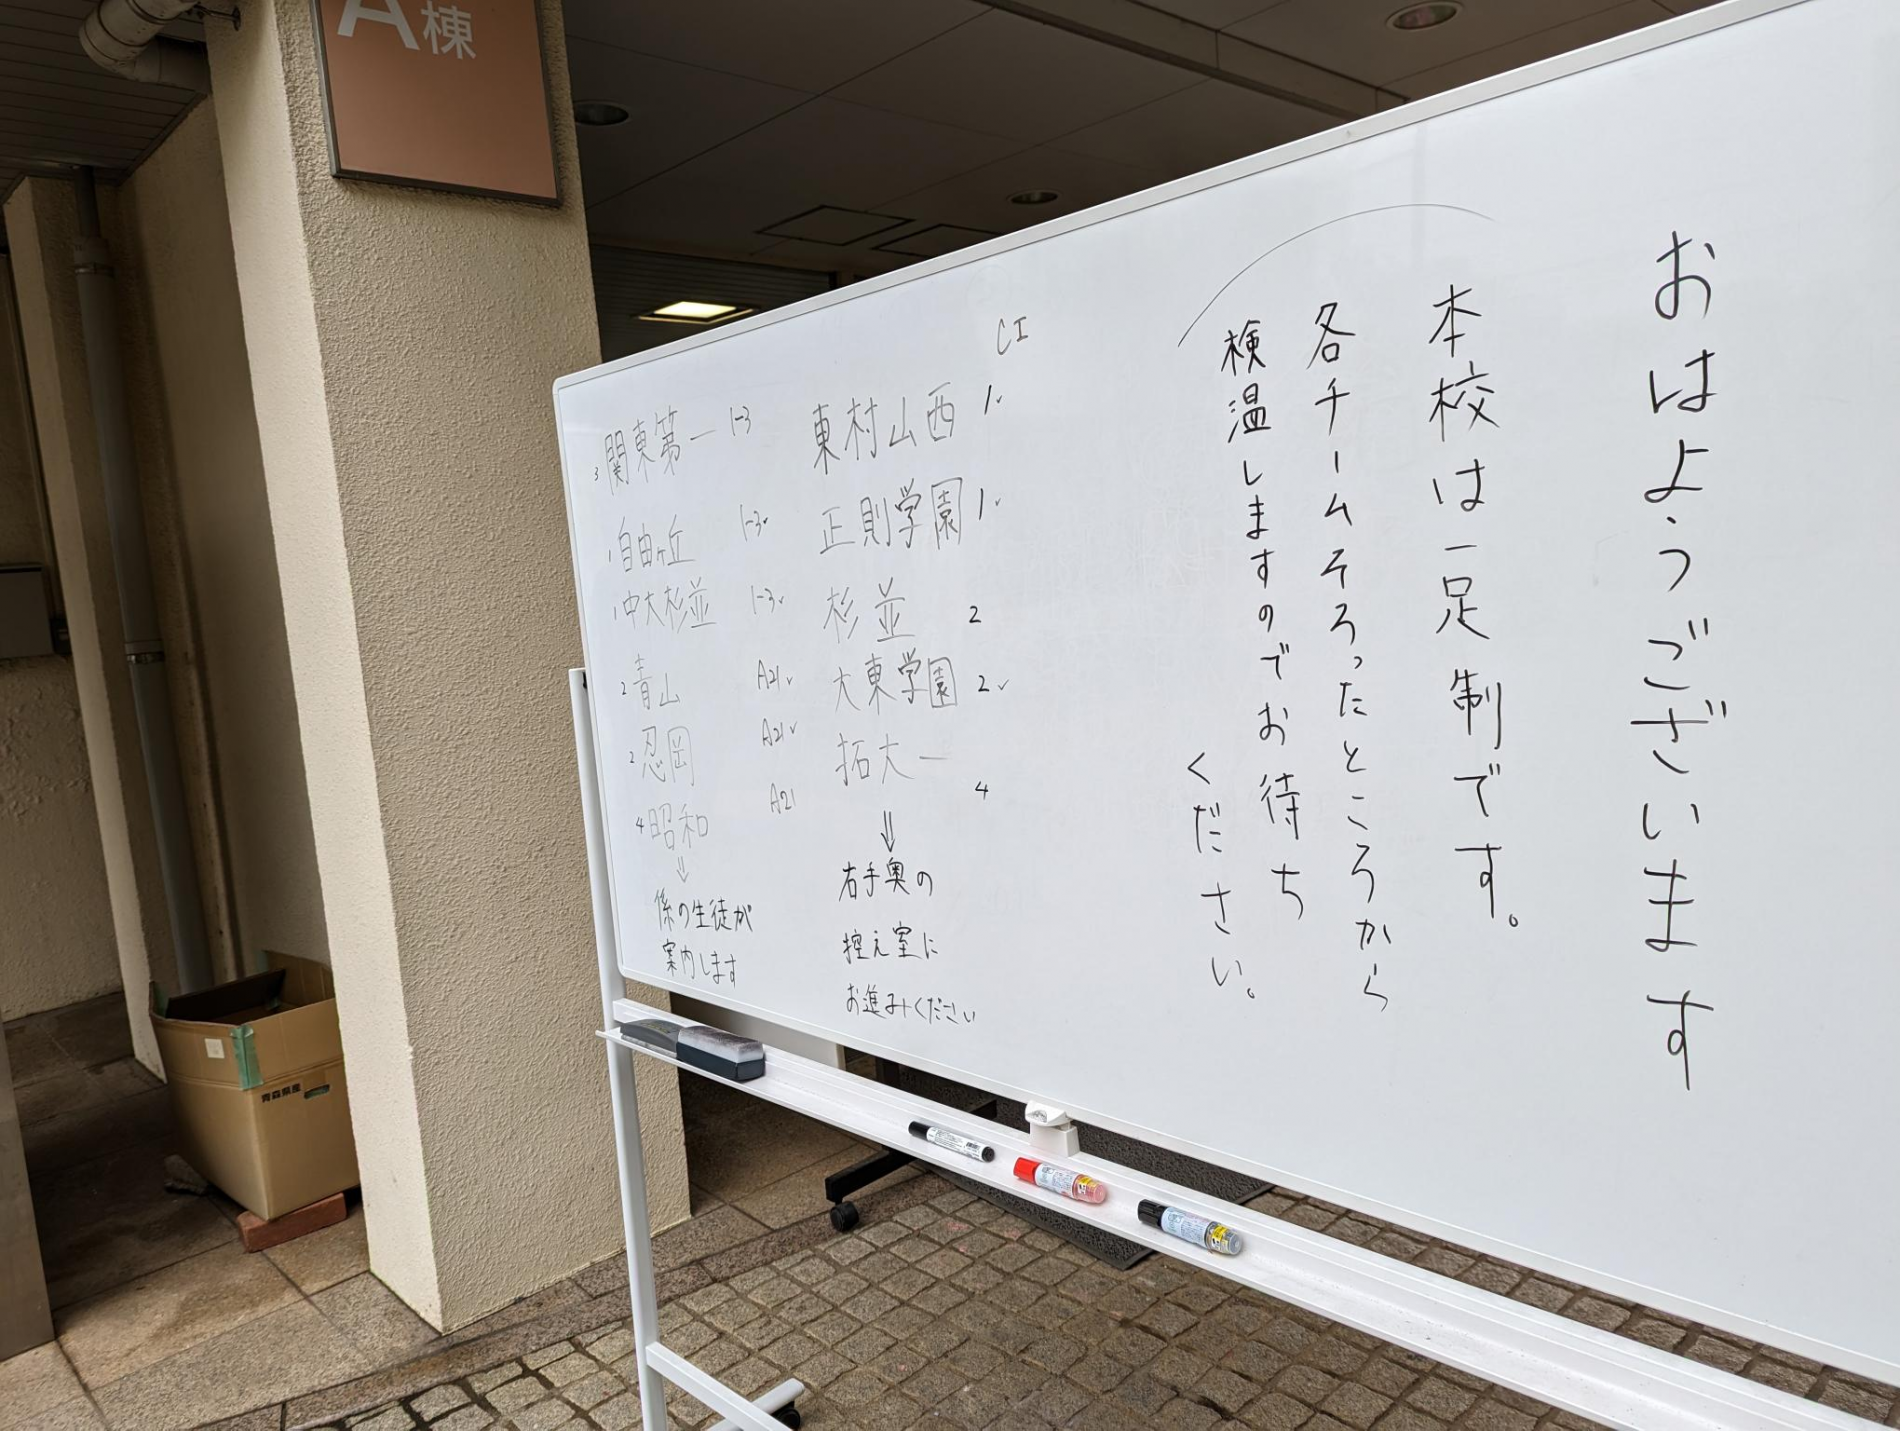 A棟
おはようございます
本校は一足制です。
各チームそろったところから
検温しますのでお待ち
ください。
CI
東村山西 1
正則学園 1
杉並 2
大東学園 2
拓大一 4
⇓
右手奥の
控え室に
お進みください
3 関東第一 1-3
1 自由ヶ丘 1-3
1 中大杉並 1-3
2 青山 A21
2 忍岡 A21
4 昭和 A21
⇓
係の生徒が
案内します
青森県産